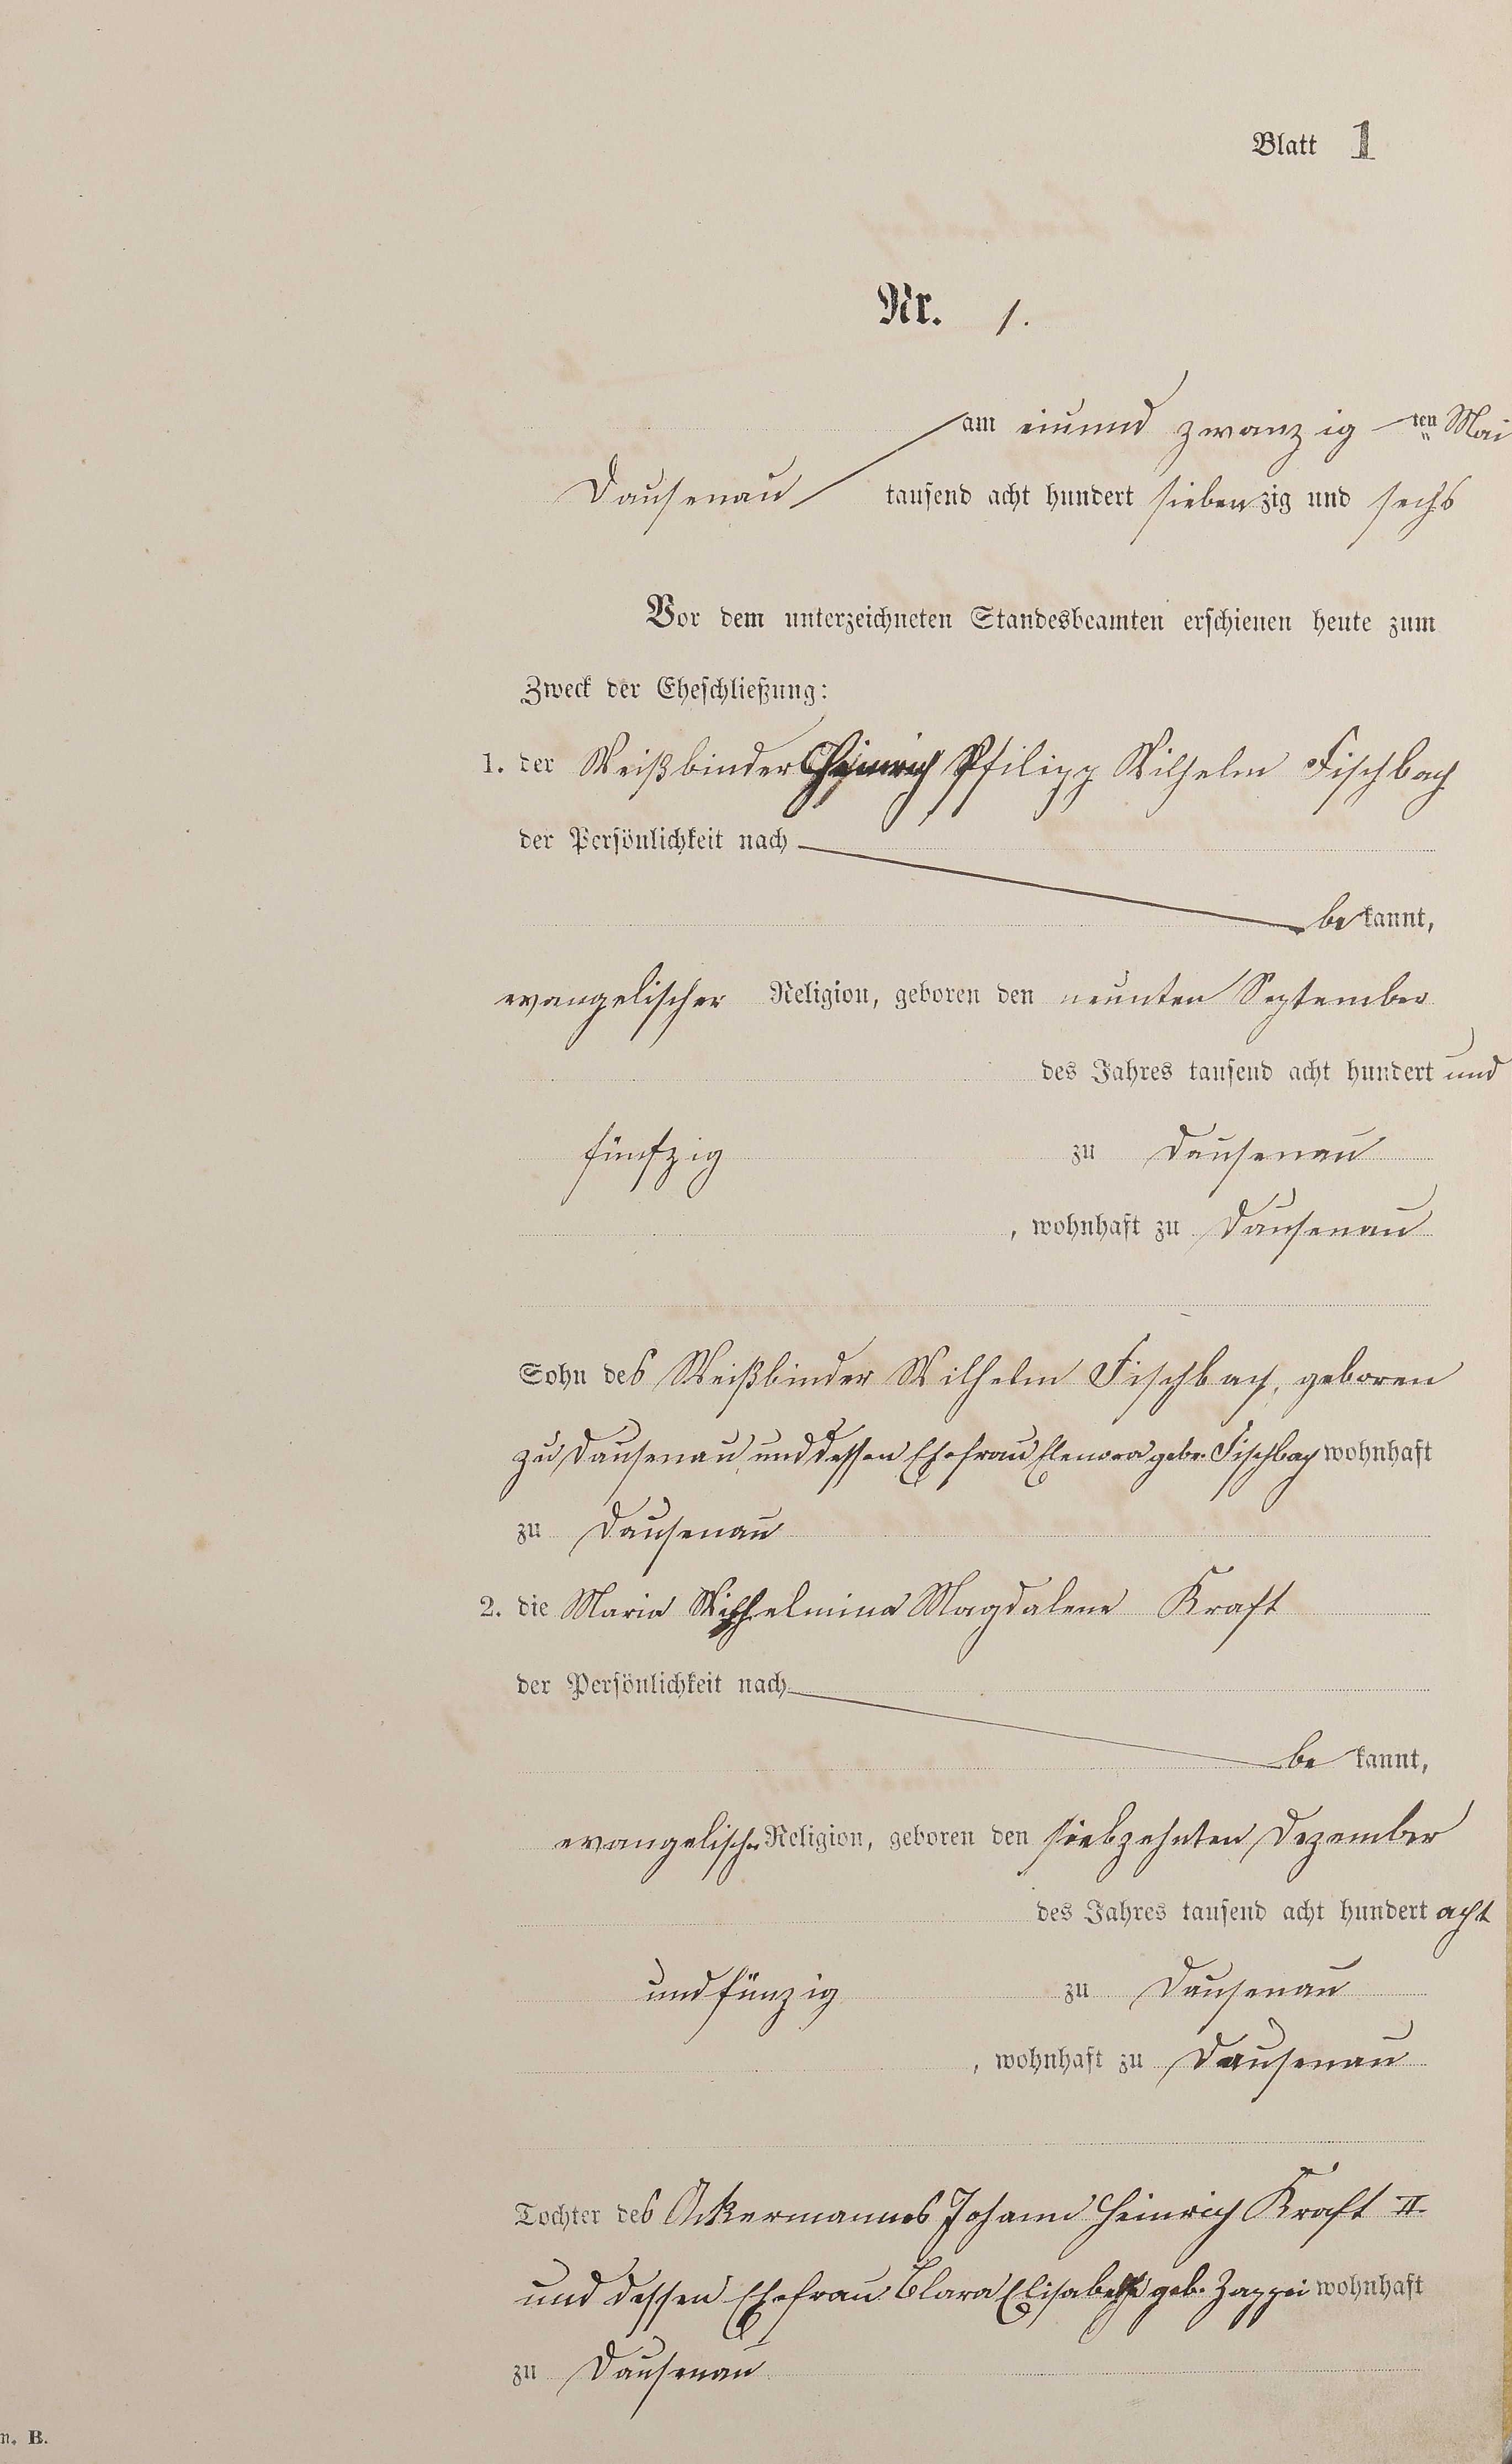 Blatt 1
Nr. 1.
am einund zwanzig ten Mai
Dausenau tausend acht hundert siebenzig und sechs
Vor dem unterzeichneten Standesbeamten erschienen heute zum
Zweck der Eheschließung:
1. der Weißbinder Heinrich Philipp Wilhelm Fischbach
der Persönlichkeit nach
bekannt,
evangelischer Religion, geboren den neunten September
des Jahres tausend acht hundert und
fünfzig zu Dausenau
, wohnhaft zu Dausenau
Sohn des Weißbinder Wilhelm Fischbach, geboren
zu Dausenau, und dessen Ehefrau Elenora gebr. Fischbach wohnhaft
zu Dausenau
2. die Maria Wilhelmina Magdalene Kraft
der Persönlichkeit nach
be kannt,
evangelischer Religion, geboren den siebzehnten Dezember
des Jahres tausend acht hundert acht
und fünzig zu Dausenau
, wohnhaft zu Dausenau
Tochter des Ackermannes Johann Heinrich Kraft II
und dessen Ehefrau Clara Elisabethe geb. Zappei wohnhaft
zu Dausenau
n. B.